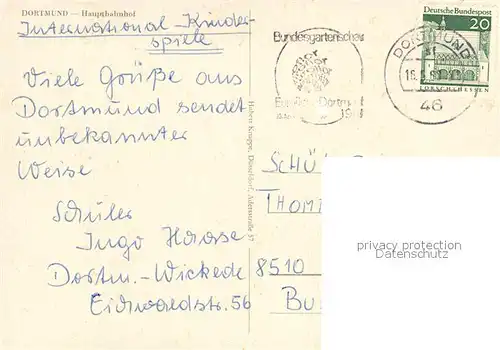 DORTMUND — Hauptbahnhof
International Kinder-
spiele
Viele Grüße aus
Dortmund sendet
unbekannter
Weise
Schüler
Ingo Haase
Dortm.-Wickede
Eichwaldstr. 56
Hubert Knappe, Düsseldorf, Adersstraße 57
Bundesgartenschau
Dortmund
DORTMUND
46
Deutsche Bundespost
20
LORSCH/HESSEN
SCHÜ
THOM
8510
privacy protection
Datenschutz